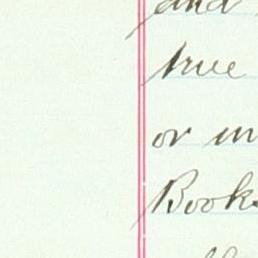 and
true
or in
Books